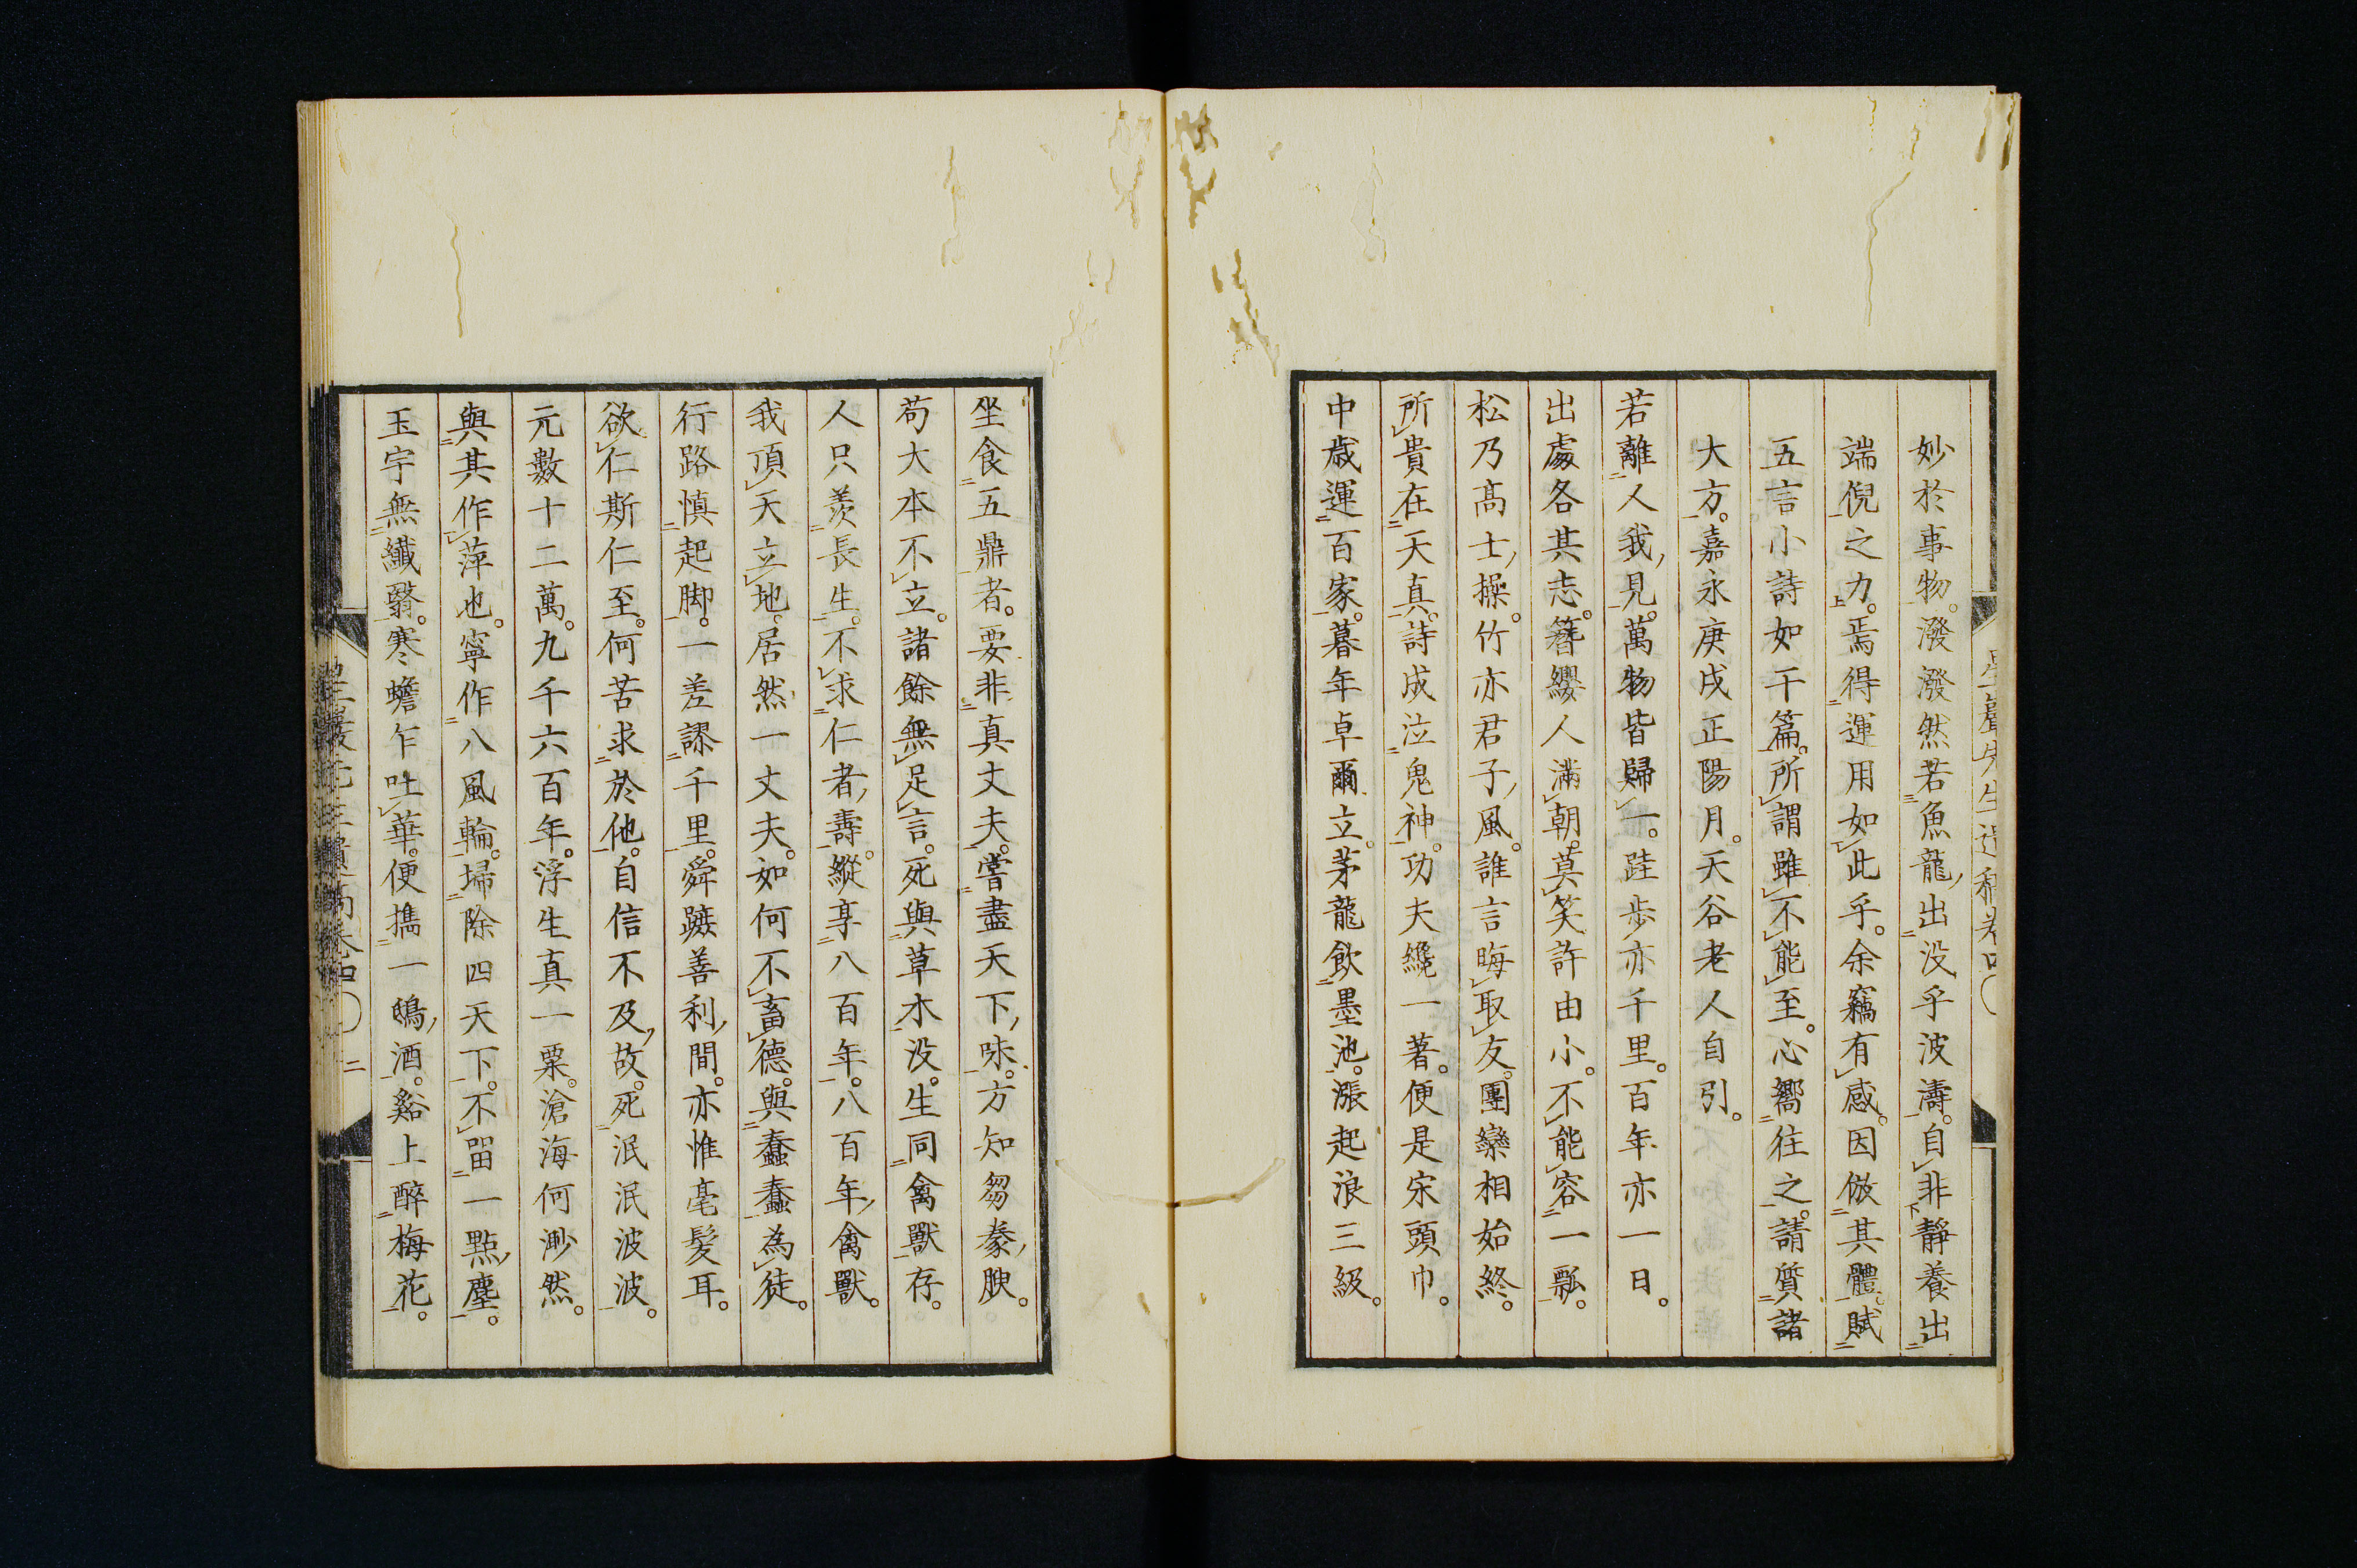 妙於事物。潑潑然若魚龍出没乎波濤。自非靜養出
端倪之力。焉得運用如此乎。余竊有感。因倣其體。賦
五言小詩如干篇。所謂雖不能至。心嚮往之。請質諸
大方。嘉永庚戌正陽月。天谷老人自引。
若離人我見。萬物皆歸一。跬步亦千里。百年亦一日。
出處各其志。簪纓人滿朝。莫笑許由小。不能容一瓢。
松乃高士操。竹亦君子風。誰言晦取友。團欒相始終。
所貴在天真。詩成泣鬼神。功夫纔一著。便是宋頭巾。
中歳運百家。暮年卓爾立。茅龍飲墨池。漲起浪三級。
坐食五鼎者。要非真丈夫。嘗盡天下味。方知芻豢腴。
苟大本不立。諸餘無足言。死與草木没。生同禽獸存。
人只羨長生。不求仁者壽。縱享八百年。八百年禽獸。
我頂天立地。居然一丈夫。如何不畜德。與蠢蠢為徒。
行路慎起脚。一差謬千里。舜蹠善利間。亦惟毫髮耳。
欲仁斯仁至。何苦求於他。自信不及故。死泯泯波波。
元數十二萬。九千六百年。浮生真一粟。滄海何渺然。
與其作萍也。寧作八風輪。掃除四天下。不留一點塵。
玉宇無纖翳。寒蟾乍吐華。便攜一鴟酒。谿上醉梅花。
二